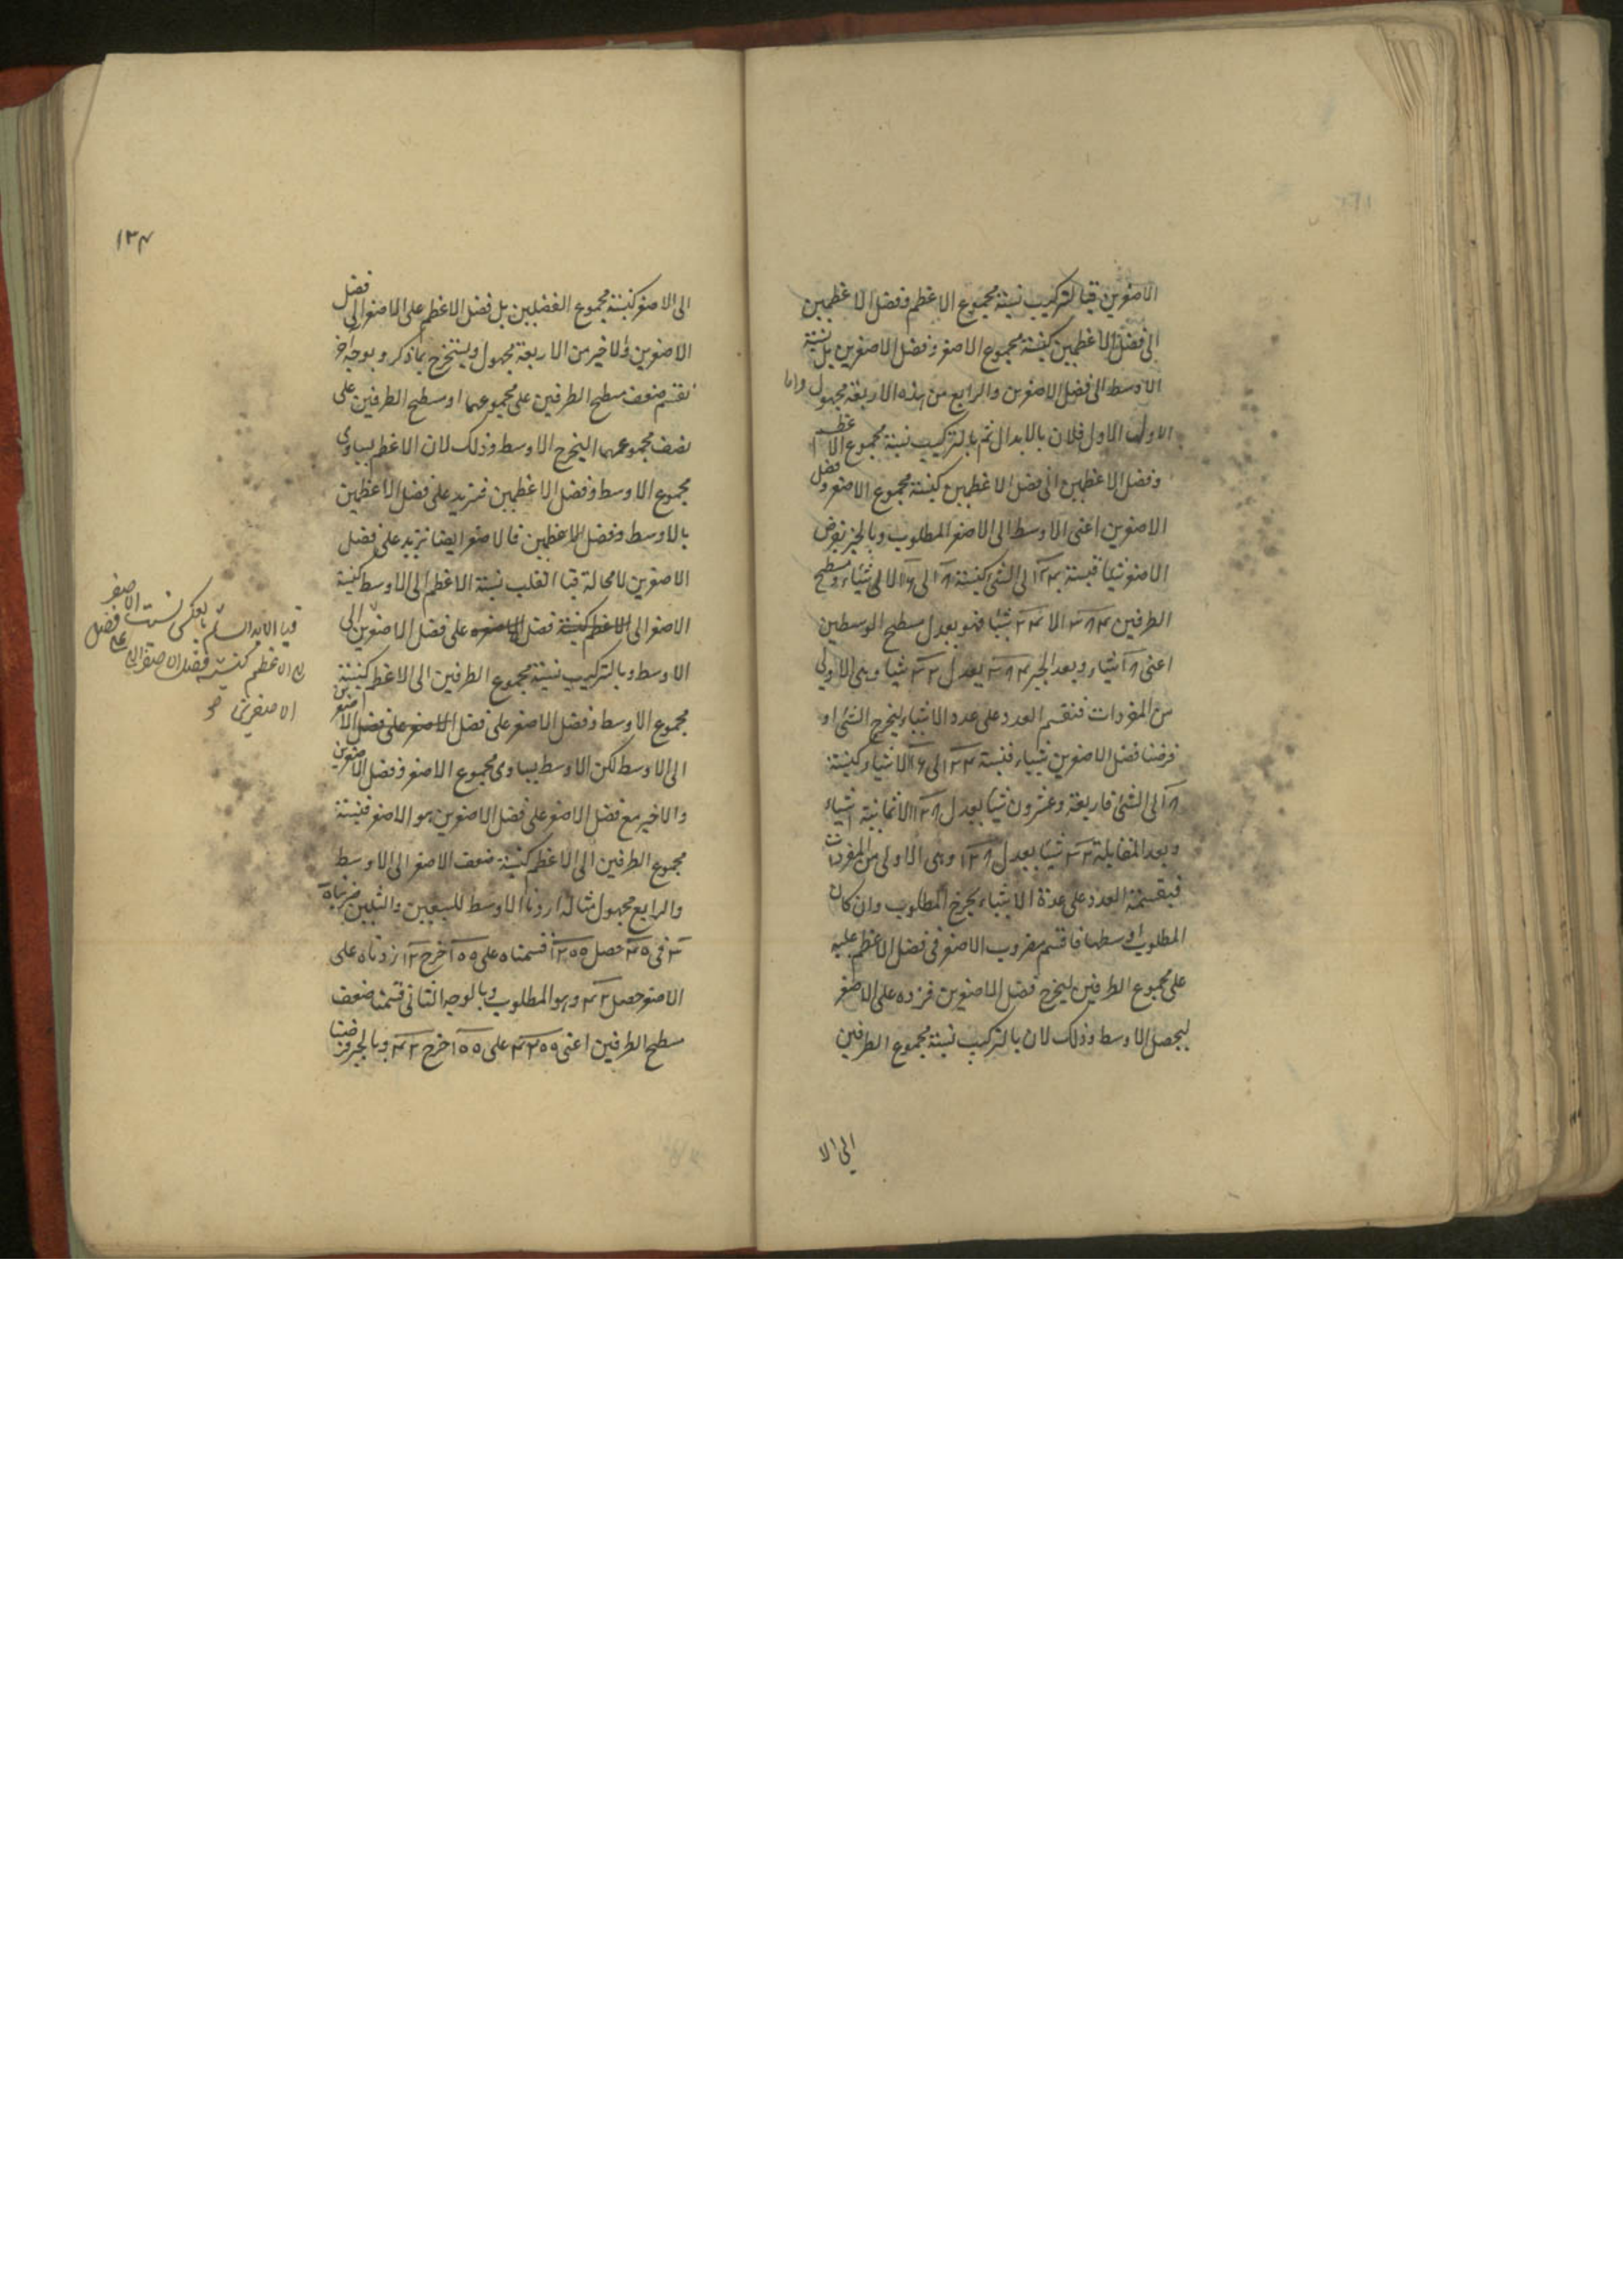 الاصغرين فبالتركيب نسبة مجموع الاعظم وفضل الاعظمين
الى فضل الاعظمين كنسبة مجموع الاصغر وفضل الاصغرين بل نسبة
الاوسط الى فضل الاصغرين والرابع من هذه الاربعة مجهول واما
الاول فلان بالابدال ثم بالتركيب نسبة مجموع الاعظم
وفضل الاعظمين الى فضل الاعظمين كنسبة مجموع الاصغر وفضل
الاصغرين اعنى الاوسط الى الاصغر المطلوب وبالجبر نفرض
الاصغر شيئا فنسبة الى الشئ كنسبة الى الا شيئا ومسطح
الطرفين الا شيئا فهو يعدل مسطح الوسطين
اعنى شيئا وبعد الجبر يعدل شيئا وهى الاولى
من المفردات فنقسم العدد على عدد الاشياء ليخرج الشئ او
فرضنا فضل الاصغرين شيئا فنسبة الى الا شيئا كنسبة
الى الشئ فاربعة وعشرون شيئا يعدل الا ثمانية اشياء
وبعد المقابلة شيئا يعدل وهى الاولى من المفردات
فبقسمة العدد على عدة الاشياء يخرج المطلوب وان كان
المطلوب اوسطها فاقسم مضروب الاصغر فى فضل الاعظم عليه
على مجموع الطرفين ليخرج فضل الاصغرين فزده على الاصغر
ليحصل الاوسط وذلك لان بالتركيب نسبة مجموع الطرفين
الى الا
١٣٤
الى الاصغر كنسبة مجموع الفضلين بل فضل الاعظم على الاصغر الى فضل
الاصغرين والاخير من الاربعة مجهول ويستخرج بما ذكر وبوجه آخر
نقسم ضعف مسطح الطرفين على مجموعهما او مسطح الطرفين على
نصف مجموعهما ليخرج الاوسط وذلك لان الاعظم يساوى
مجموع الاوسط وفضل الاعظمين فيزيد على فضل الاعظمين
بالاوسط وفضل الاعظمين فالاصغر ايضا يزيد على فضل
الاصغرين لا محالة فبالقلب نسبة الاعظم الى الاوسط كنسبة
الاصغر الى الاعظم كنسبة فضل الاصغر على فضل الاصغرين الى
الاوسط وبالتركيب نسبة مجموع الطرفين الى الاعظم كنسبة
مجموع الاوسط وفضل الاصغر على فضل الاصغر على فضل الاصغرين
الى الاوسط لكن الاوسط يساوى مجموع الاصغر وفضل الاصغرين
والاخير مع فضل الاصغر على فضل الاصغرين هو الاصغر فنسبة
مجموع الطرفين الى الاعظم كنسبة ضعف الاصغر الى الاوسط
والرابع مجهول مثاله اردنا الاوسط للسبعين والثلثين ضربنا
فى حصل قسمناه على ١٠٠ خرج ١٢ زدناه على
الاصغر حصل ٤٢ وهو المطلوب وبالوجه الثانى قسمنا ضعف
مسطح الطرفين اعنى ٤٢٠٠ على ١٠٠ خرج ٤٢ وبالجبر فرضنا
فبالابدال ثم بالعكس نسبت الاصغر
الى الاعظم كنسبة فضل الاصغر على فضل
الاصغرين